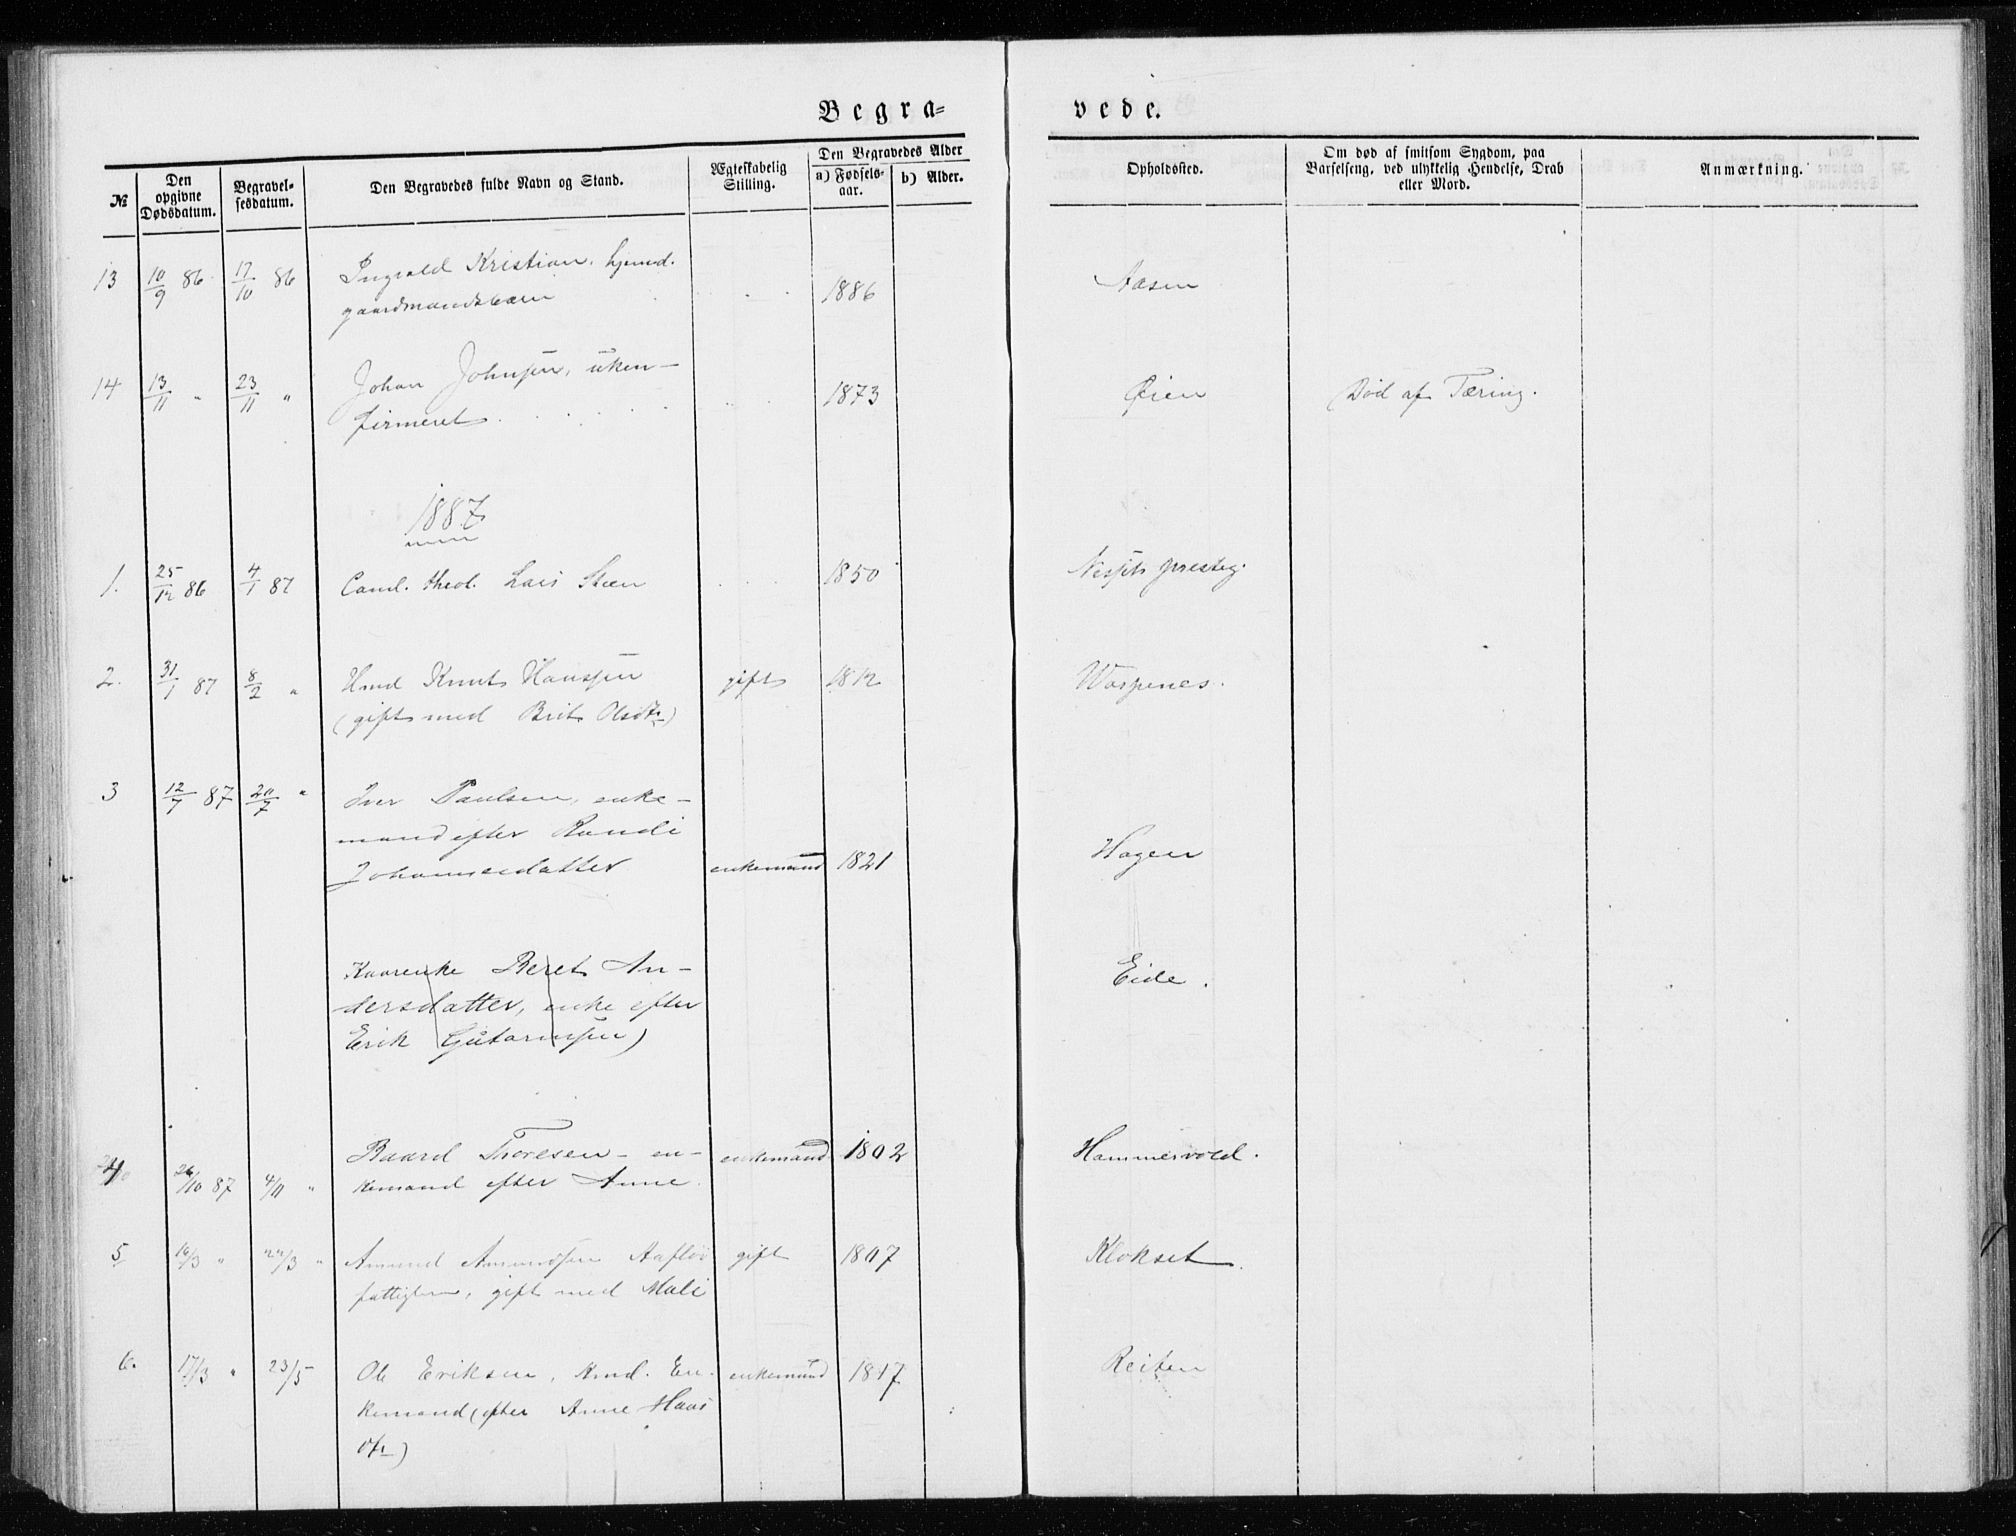 Begra=
vede.
№
Den opgivne Dødsdatum.
Begravel-sesdatum.
Den Begravedes fulde Navn og Stand.
Ægteskabelig Stilling.
Den Begravedes Alder
a) Fødsels-aar.
b) Alder.
Opholdssted.
Om død af smitsom Sygdom, paa Barselseng, ved ulykkelig Hendelse, Drab eller Mord.
Anmærkning.
13 10/9 86 17/10 86 Ingvald Kristian, hjemd. 1886 Aasen
gaardmandsbarn
14 13/11 " 23/11 " Johan Johnsen, uken- 1873 Øien Død af Tæring.
firmeret
1887
1. 25/12 86 4/1 87 Cand. theol. Lars Steen 1850 presteg.
2. 31/1 87 8/2 " Knut Hanssen gift 1812
(gift med Brit Olsdtr)
3 12/7 87 20/7 " Iver Paulsen, enke-
mand efter Randi
Johannesdatter enkemand 1821 Hagen
Kaarenke Beret An-
dersdatter, enke efter Eide.
Erik
4 26/10 87 4/11 " Baard Thoresen - en- enkemand 1802 Hammervold.
kemand efter Anne
5 16/3 " 22/3 " Amund Amundsen gift 1807 Klokset.
fattiglem, gift med Mali
6. 17/3 " 23/5 Ole Eriksen, Kmd. En- enkemand 1817 Reiten
kemand (efter Anne Hans
dtr)